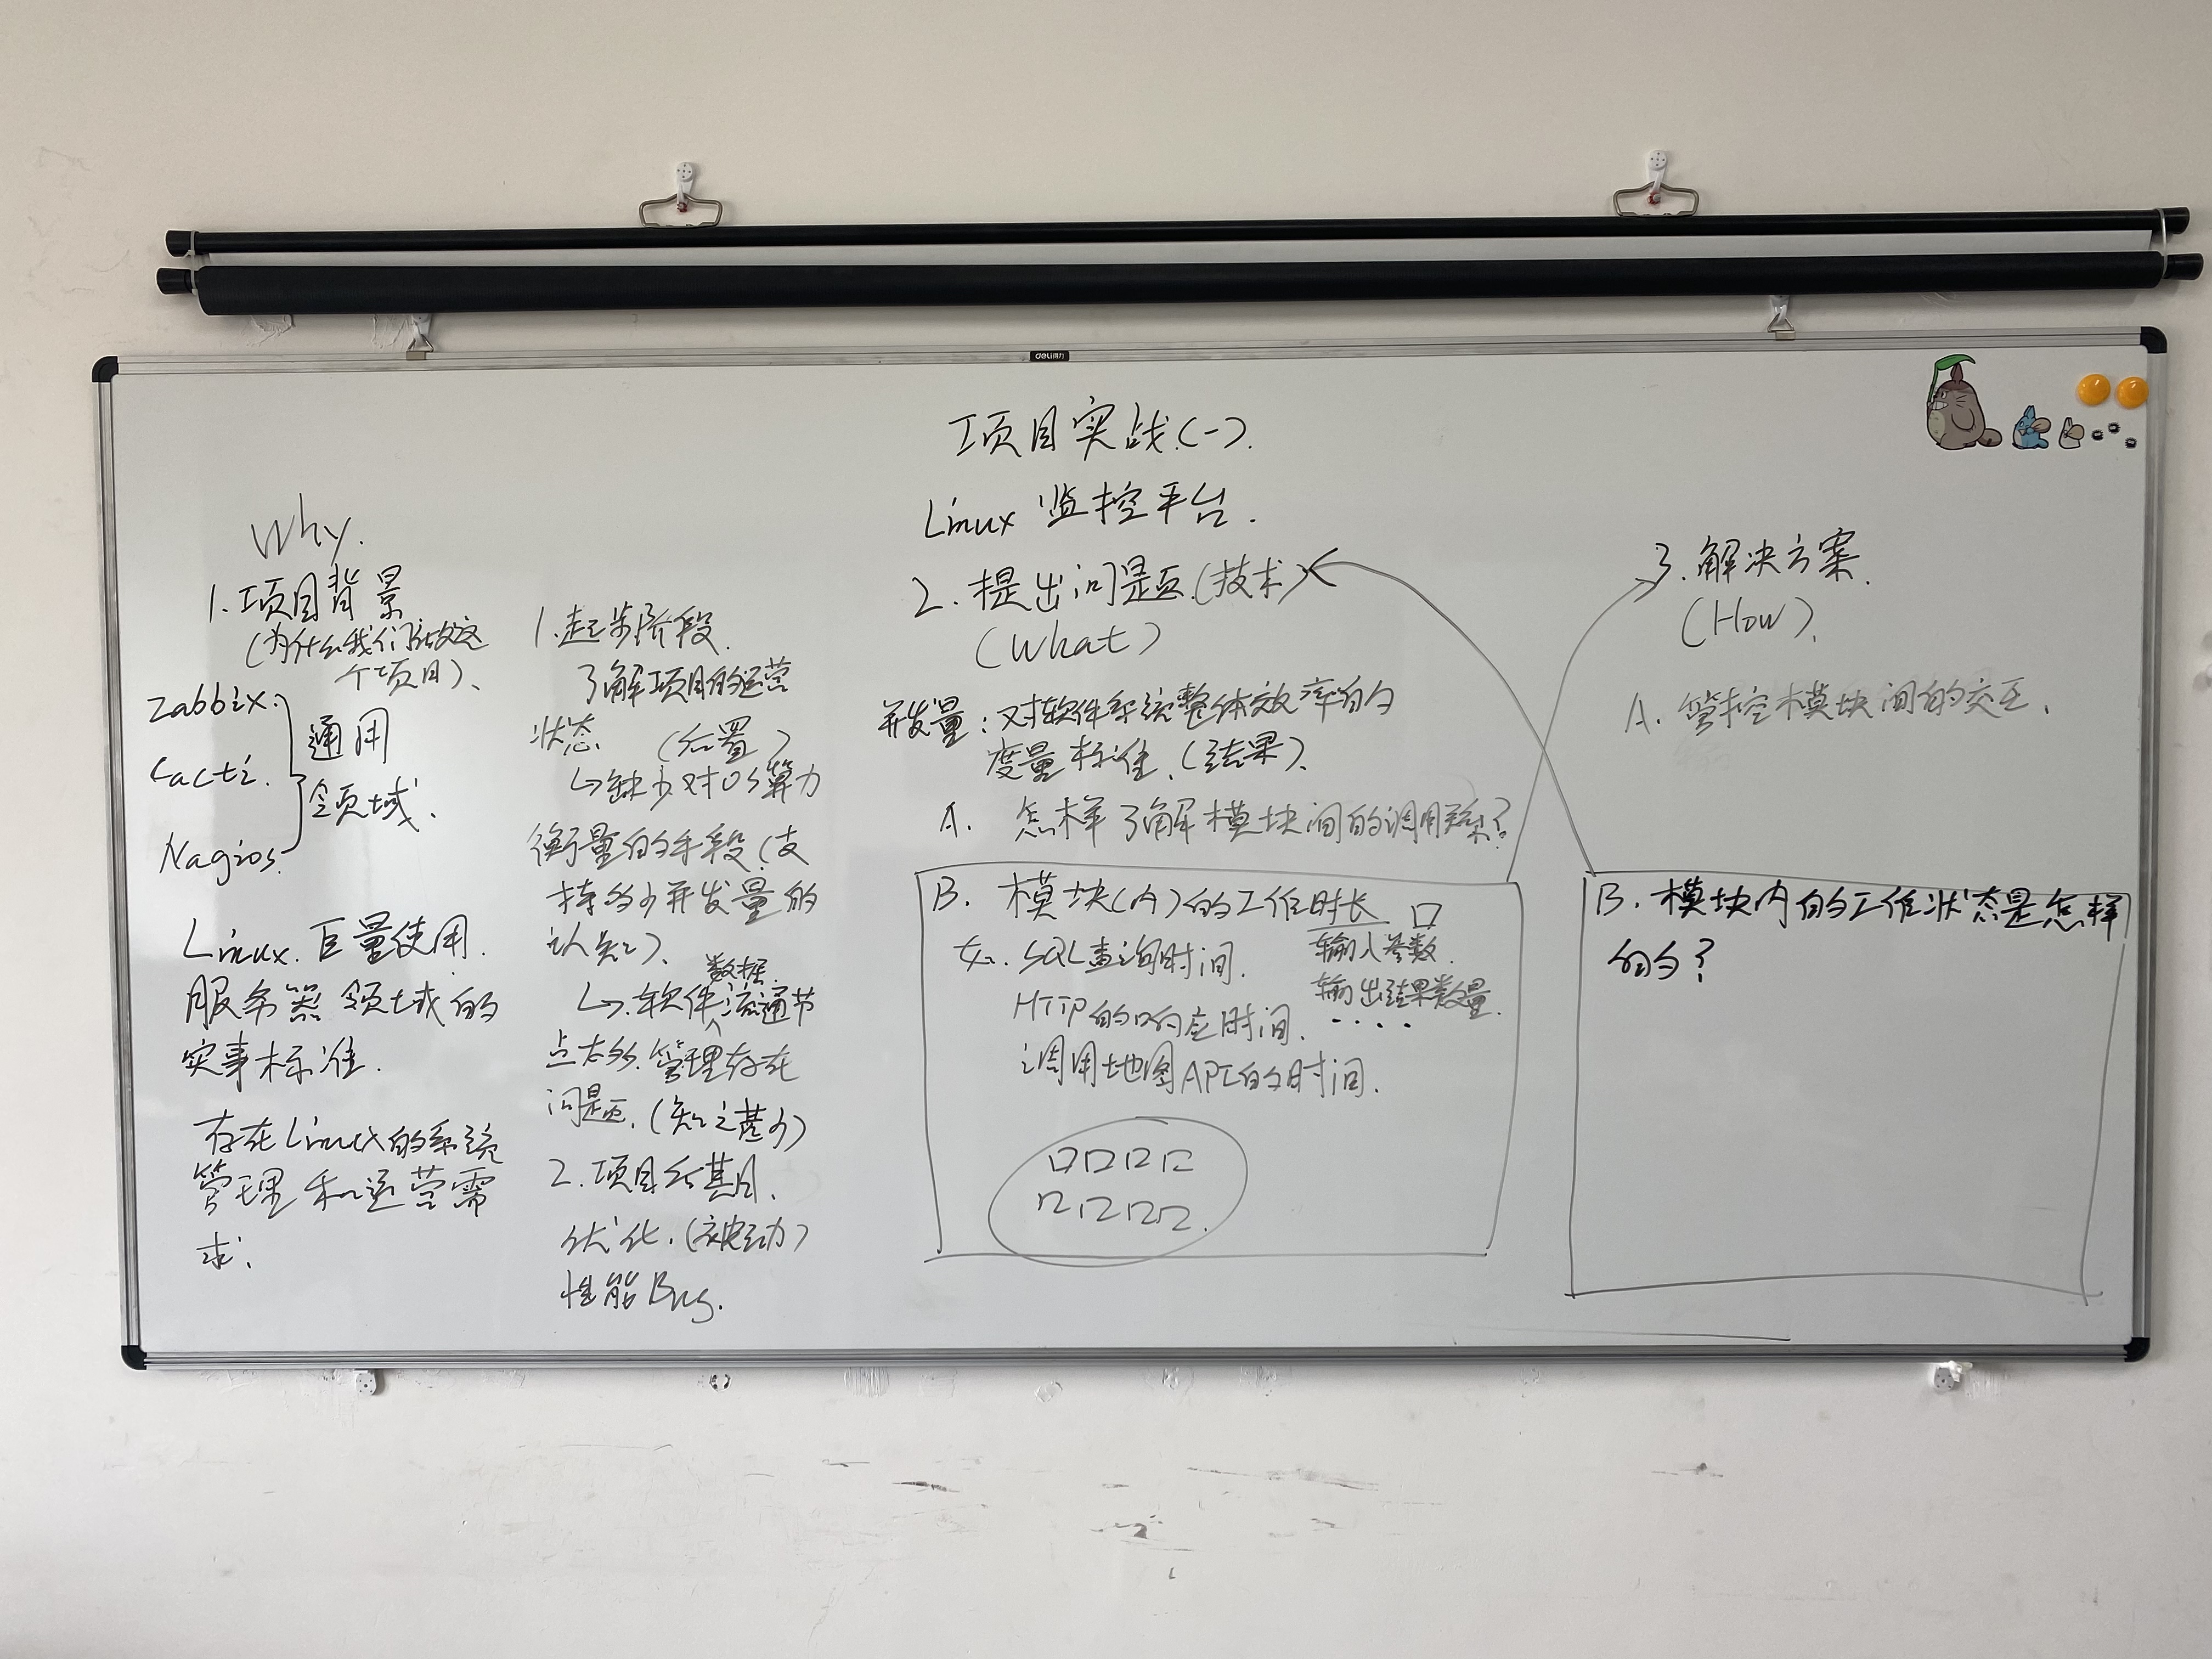 deli得力
项目实战(一).
Linux 监控平台.
Why.
1.项目背景
(为什么我们要做这
个项目)、
Zabbix.
Cacti.
Nagios.
通用
领域.
Linux.巨量使用.
服务器领域的
实事标准.
存在Linux的系统
管理和运营需
求.
1.起步阶段.
了解项目的运营
状态 (后置)
↳缺少对OS算力
衡量的手段(支
持多少并发量的
认知)、
数据
↳.软件流通节
点太多.管理存在
问题.(知之甚少)
2.项目后期.
优化.(被动)
性能Bug.
2.提出问题.(技术)
(What)
并发量:对软件系统整体效率的
度量标准.(结果)、
A. 怎样了解模块间的调用?
B. 模块(内)的工作时长
如. SQL查询时间.
HTTP的响应时间.
调用地图API的时间.
输入参数.
输出结果数量.
....
3.解决方案.
(How).
A.管控模块间的交互.
B.模块内的工作状态是怎样
的?